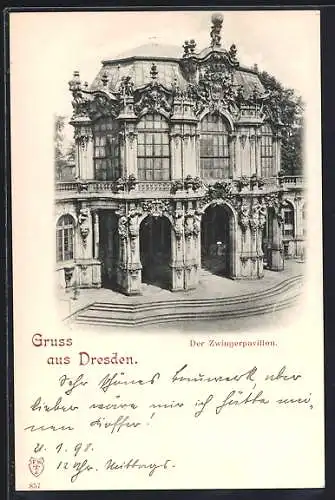 Gruss
aus Dresden.
Der Zwingerpavillon.
Sehr schönes Bauwerk, aber
lieber wäre mir ich hätte mei-
nen Koffer!
1. 98.
12 Uhr. Mittags.
857